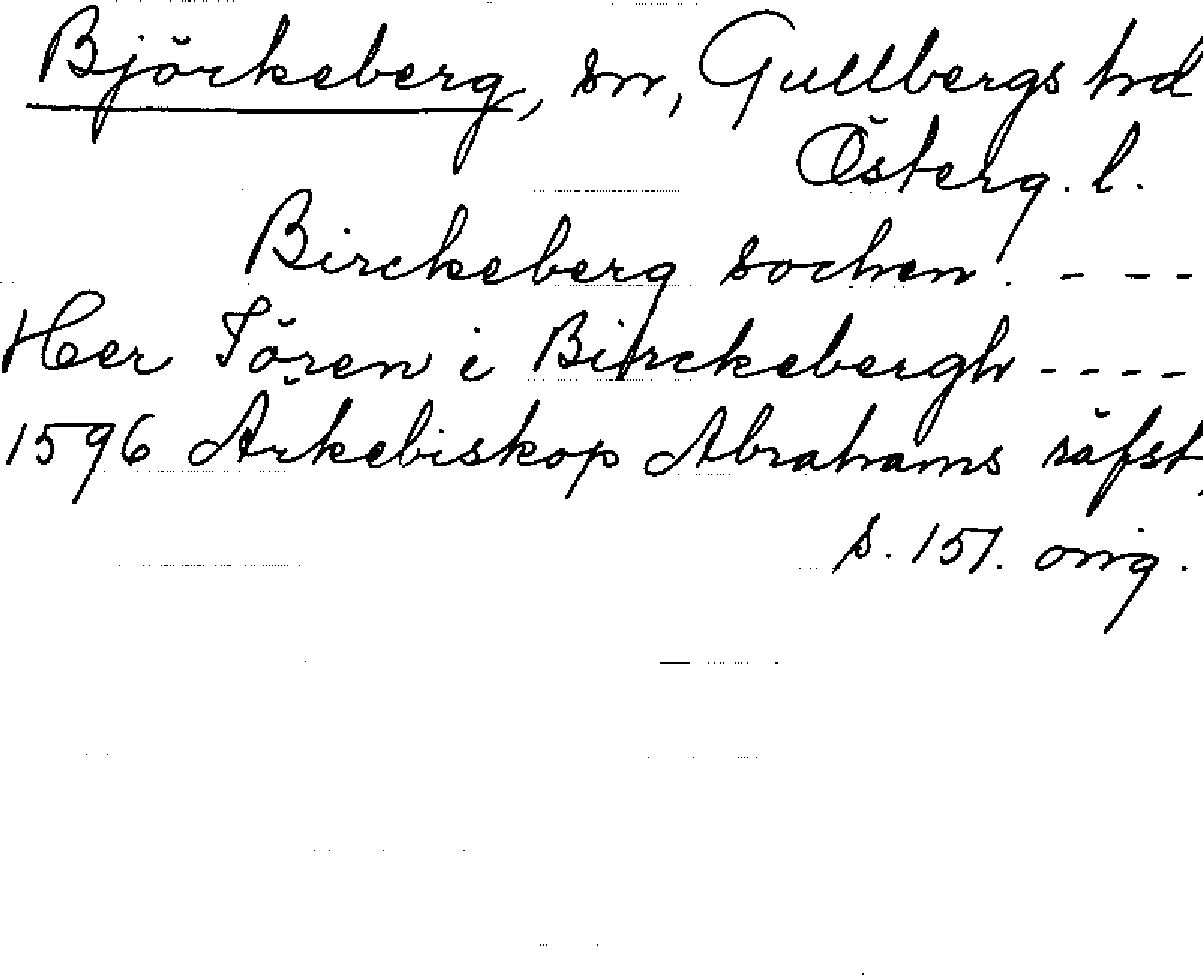 Björkeberg, sn, Gullbergs hd
Österg. l.
Birckeberg sochen. - - -
Her Tören i Birckebergh - - - -
1596 Ärkebiskop Abrahams räfst,
s. 151. orig.